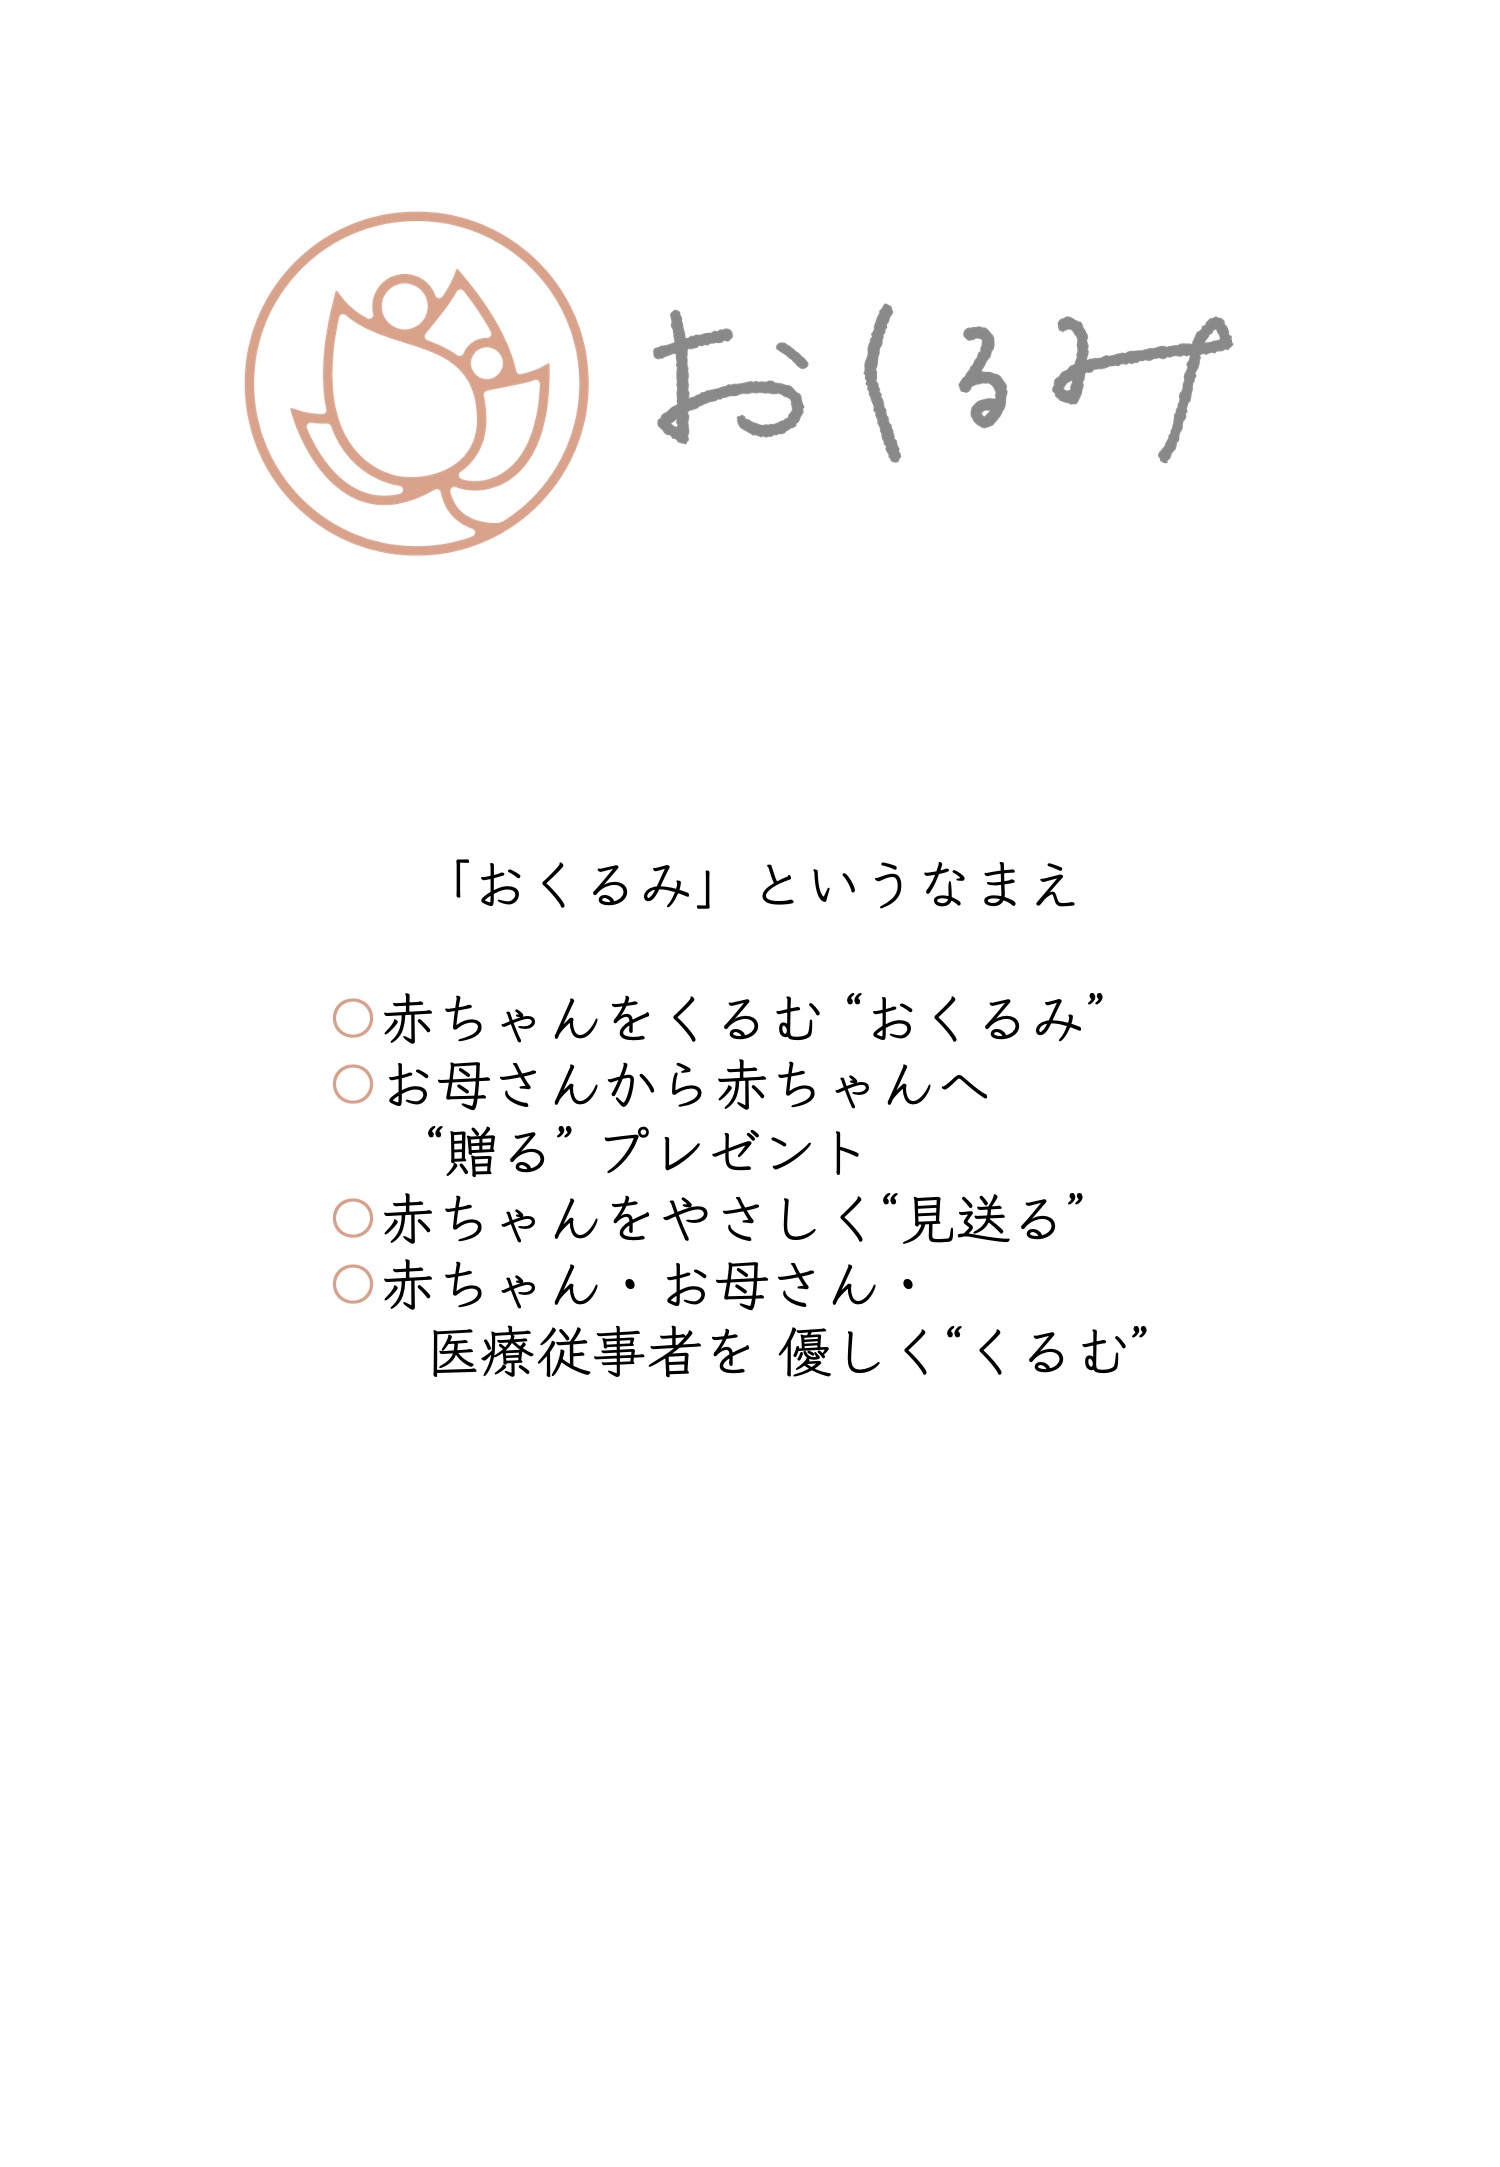 おくるみ
「おくるみ」というなまえ
○赤ちゃんをくるむ “おくるみ”
○お母さんから赤ちゃんへ
“贈る” プレゼント
○赤ちゃんをやさしく“見送る”
○赤ちゃん・お母さん・
医療従事者を 優しく“くるむ”